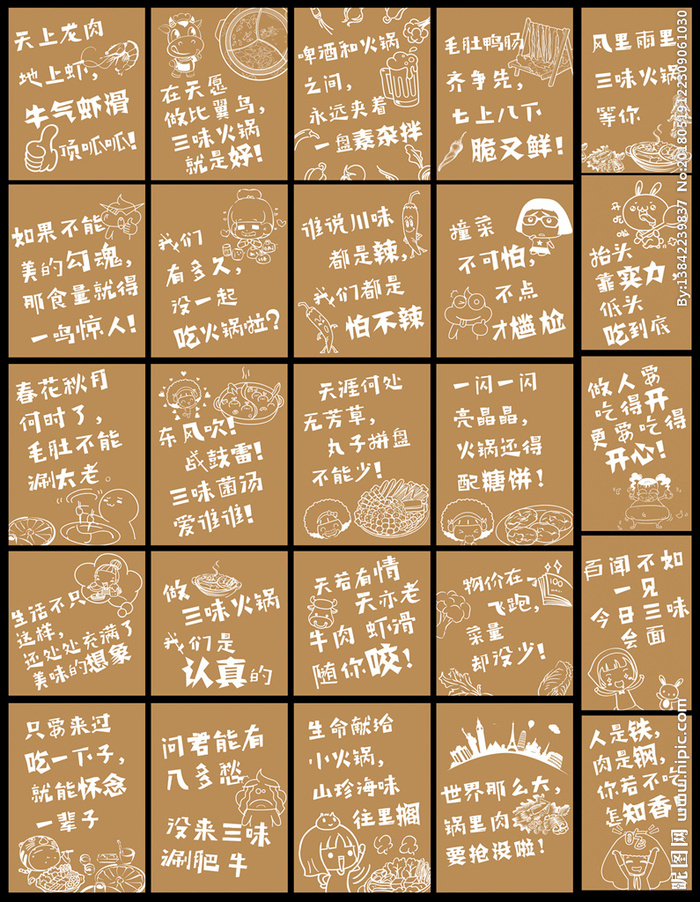 天上龙肉
地上虾，
牛气虾滑
顶呱呱！
在天愿
做比翼鸟，
三味火锅
就是好！
啤酒和火锅
之间，
永远夹着
一盘素杂拌
毛肚鸭肠
齐争先，
七上八下
脆又鲜！
风里雨里
三味火锅
等你
如果不能
美的勾魂，
那食量就得
一鸣惊人！
我们
有多久，
没一起
吃火锅啦？
谁说川味
都是辣，
我们都是
怕不辣
撞菜
不可怕，
不点
才尴尬
抬头
靠实力，
低头
吃到底
春花秋月
何时了，
毛肚不能
涮太老
东风吹！
战鼓雷！
三味菌汤
爱谁谁！
天涯何处
无芳草，
丸子拼盘
不能少！
一闪一闪
亮晶晶，
火锅还得
配糖饼！
做人要
吃得开
更要吃得
开心！
生活不只
这样，
还处处充满了
美味的想象
做
三味火锅
我们是
认真的
天若有情
天亦老
牛肉 虾滑
随你咬！
物价在
飞跑，
菜量
却没少！
百闻不如
一见
今日三味
会面
只要来过
吃一下子，
就能怀念
一辈子
问君能有
几多愁
没来三味
涮肥牛
生命献给
小火锅，
山珍海味
往里搁
世界那么大，
锅里肉
要抢没啦！
人是铁，
肉是钢，
你若不吃
怎知香
By:13842239837 No:20180519122309061030
昵图网 www.nipic.com